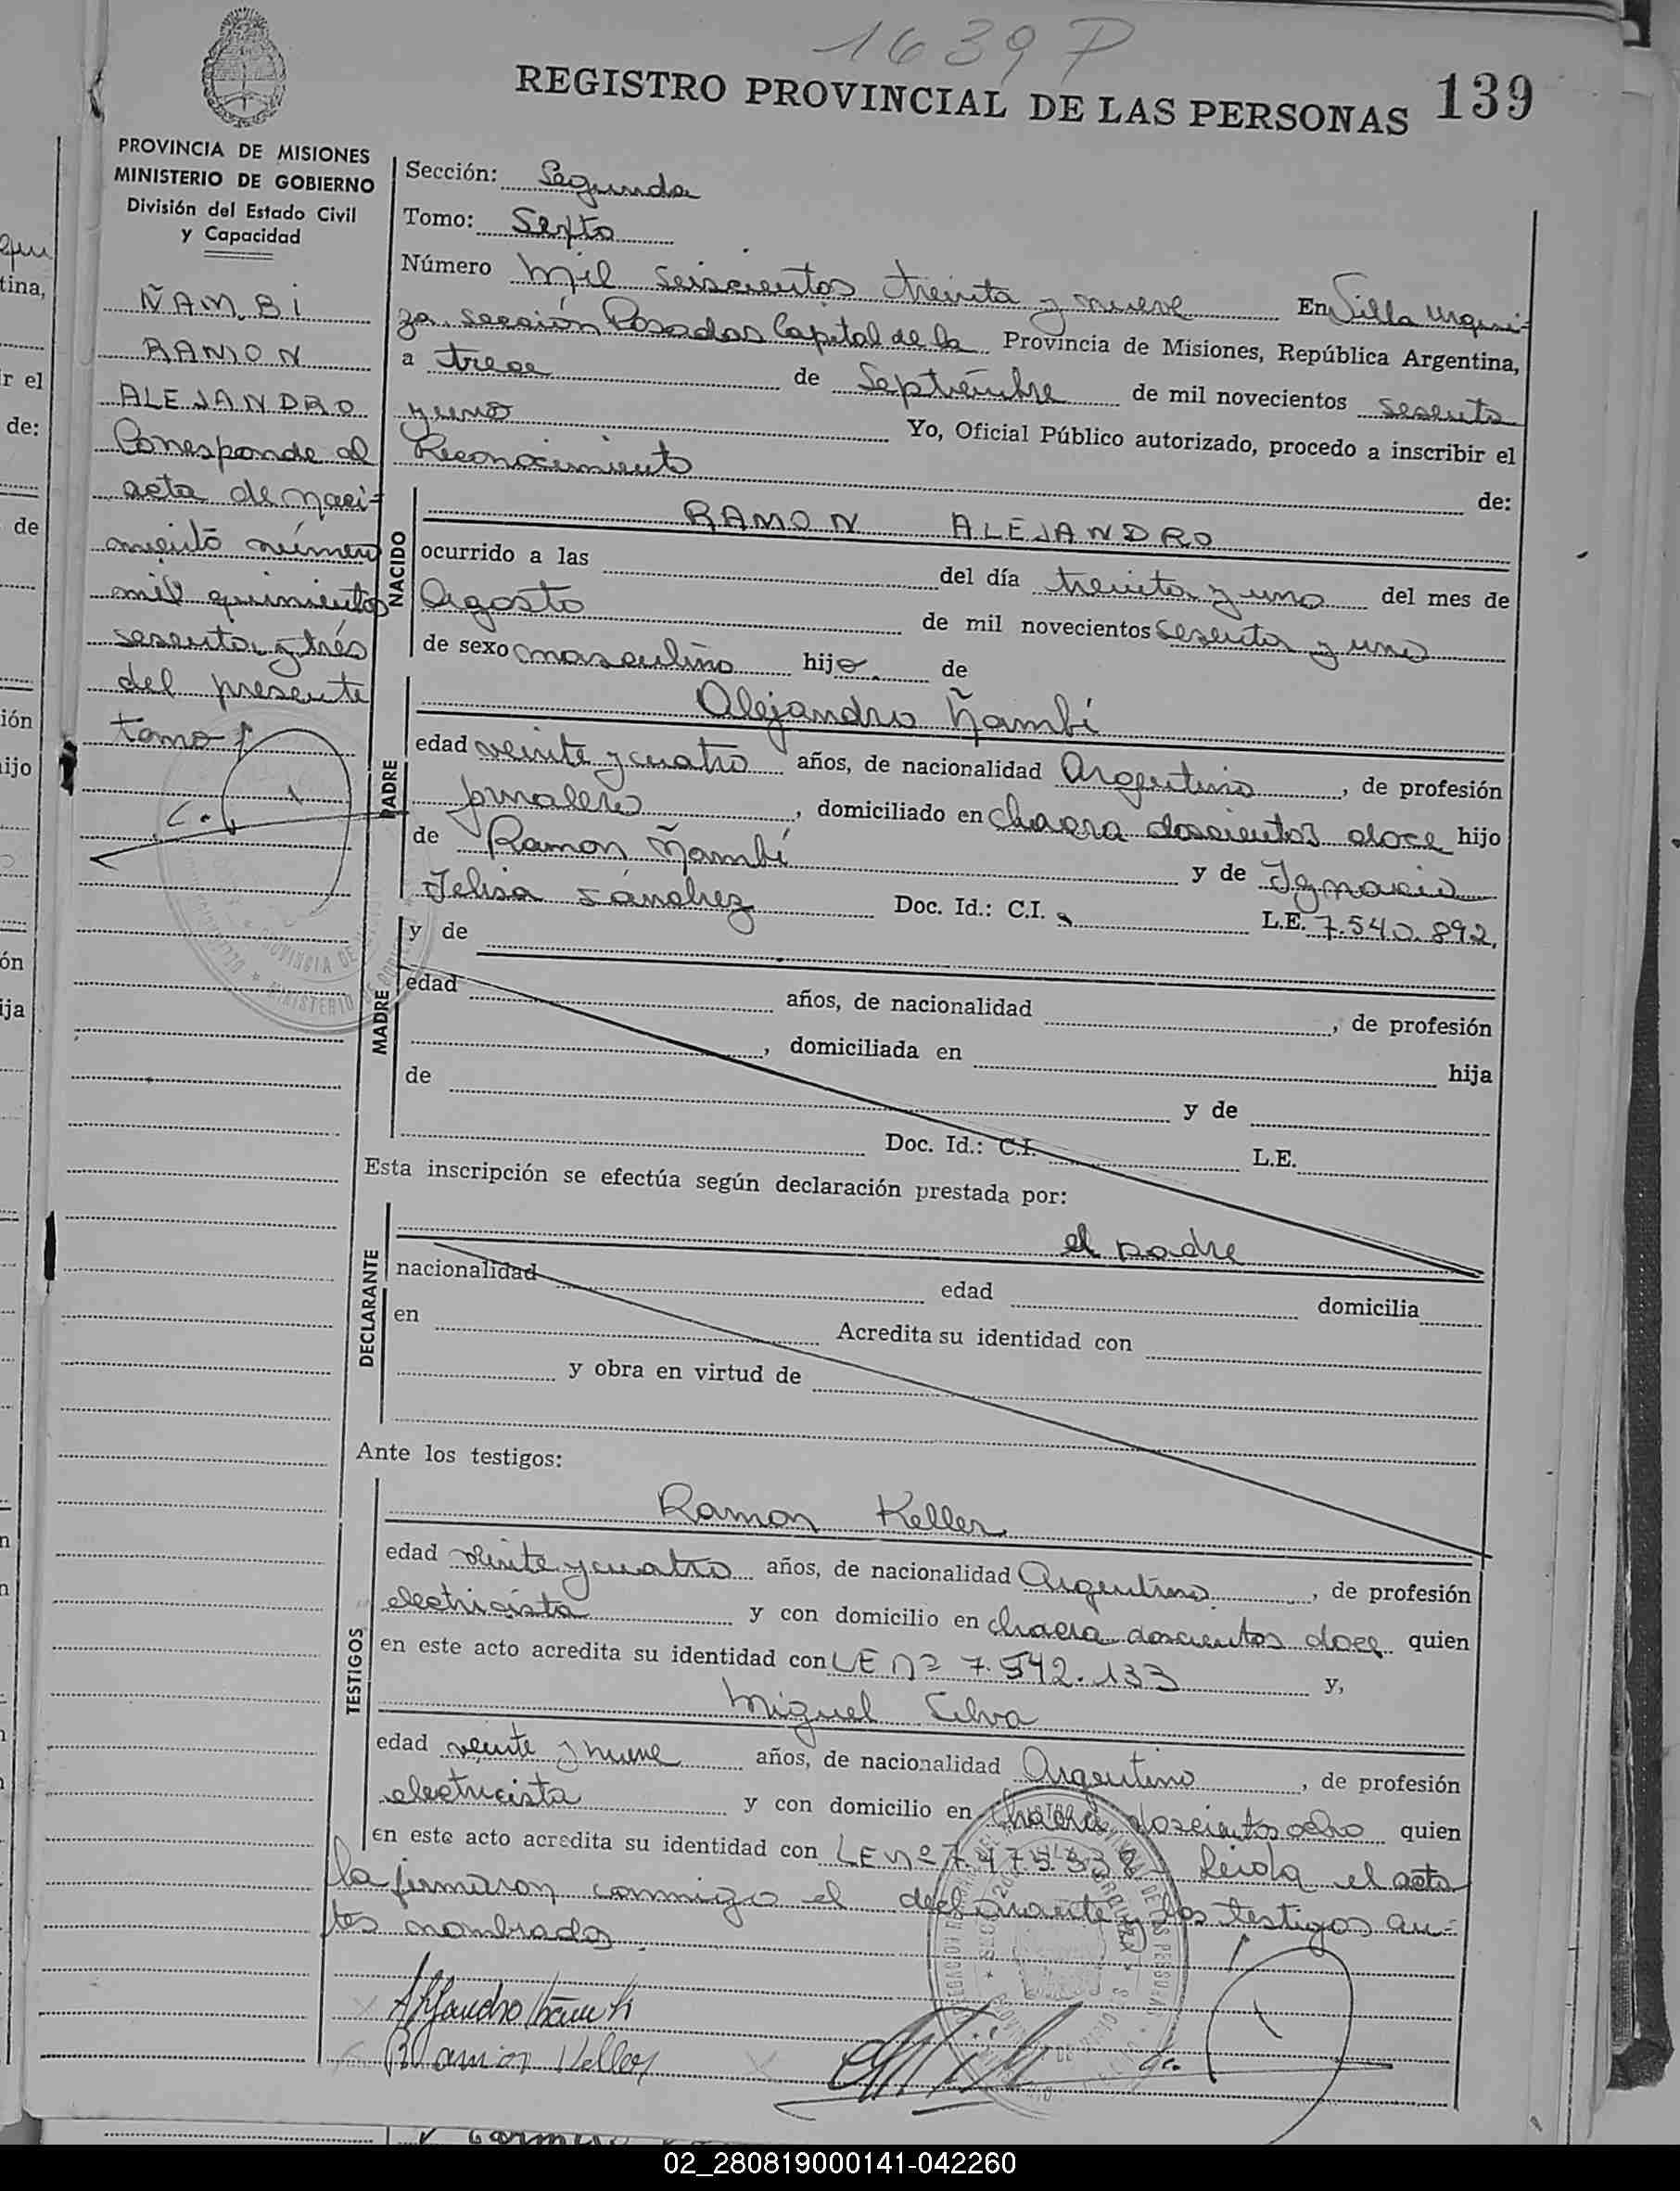 1639 P
REGISTRO PROVINCIAL DE LAS PERSONAS 139
PROVINCIA DE MISIONES
MINISTERIO DE GOBIERNO
División del Estado Civil
y Capacidad
ÑAMBI
RAMON
ALEJANDRO
Corresponde al
acta de naci-
miento número
mil quinientos
sesenta y tres
del presente
tomo
Sección: Segunda
Tomo: Sexto
Número mil seiscientos treinta y nueve En Villa Urqui-
za, sección Posadas Capital de la Provincia de Misiones, República Argentina,
a trece de Septiembre de mil novecientos sesenta
y uno Yo, Oficial Público autorizado, procedo a inscribir el
Reconocimiento de:
NACIDO
RAMON ALEJANDRO
ocurrido a las del día treinta y uno del mes de
Agosto de mil novecientos sesenta y uno
de sexo masculino hijo de
PADRE
Alejandro Ñambí
edad veinte y cuatro años, de nacionalidad Argentino, de profesión
jornalero, domiciliado en chacra doscientos doce hijo
de Ramon Ñambí y de Ignacia
Felisa Sánchez Doc. Id.: C.I. L.E. 7.540.892.
MADRE
y de
edad años, de nacionalidad , de profesión
, domiciliada en hija
de y de
Doc. Id.: C.I. L.E.
Esta inscripción se efectúa según declaración prestada por:
DECLARANTE
el padre
nacionalidad edad domicilia
en Acredita su identidad con
y obra en virtud de
Ante los testigos:
TESTIGOS
Ramon Keller
edad veinte y cuatro años, de nacionalidad Argentino, de profesión
electricista y con domicilio en chacra doscientos doce quien
en este acto acredita su identidad con LE nº 7.542.133 y,
Miguel Silva
edad veinte y nueve años, de nacionalidad Argentino, de profesión
electricista y con domicilio en chacra doscientos ocho quien
en este acto acredita su identidad con LE nº Leida el acta
la firmaron conmigo el declarante y los testigos an-
tes nombrados.
Ramon Keller
02_280819000141-042260